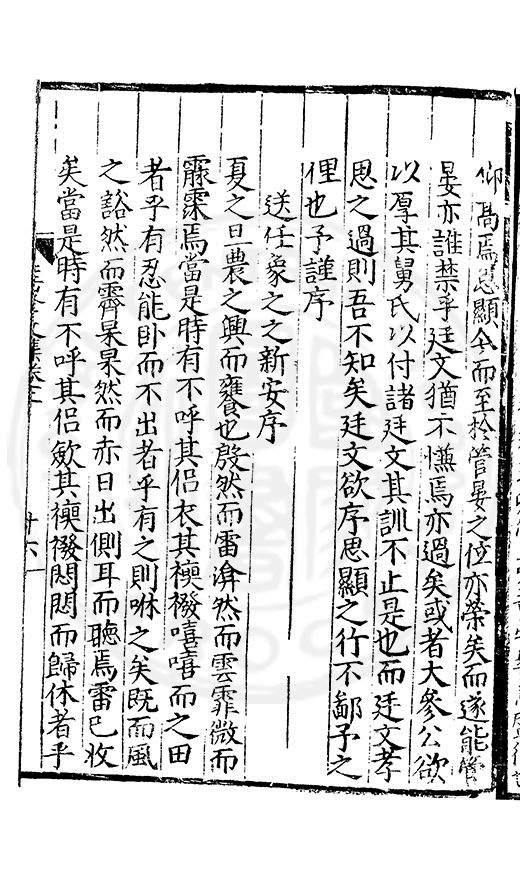 仰高焉思顯今而至於管晏之位亦榮矣而遂能管
晏亦誰禁乎廷文猶不慊焉亦過矣或者大參公欲
以厚其舅氏以付諸廷文其訓不止是也而廷文孝
思之過則吾不知矣廷文欲序思顯之行不鄙予之
俚也予謹序
送任象之之新安序
夏之旦農之興而饔飧也殷然而雷渰然而雲霏微而
霡霂焉當是時有不呼其侶衣其襏襫嘻嘻而之田
者乎有忍能卧而不出者乎有之則咻之矣既而風
之豁然而霽杲杲然而赤日出側耳而聽焉雷已收
矣當是時有不呼其侶歛其襏襫悶悶而歸休者乎
十六